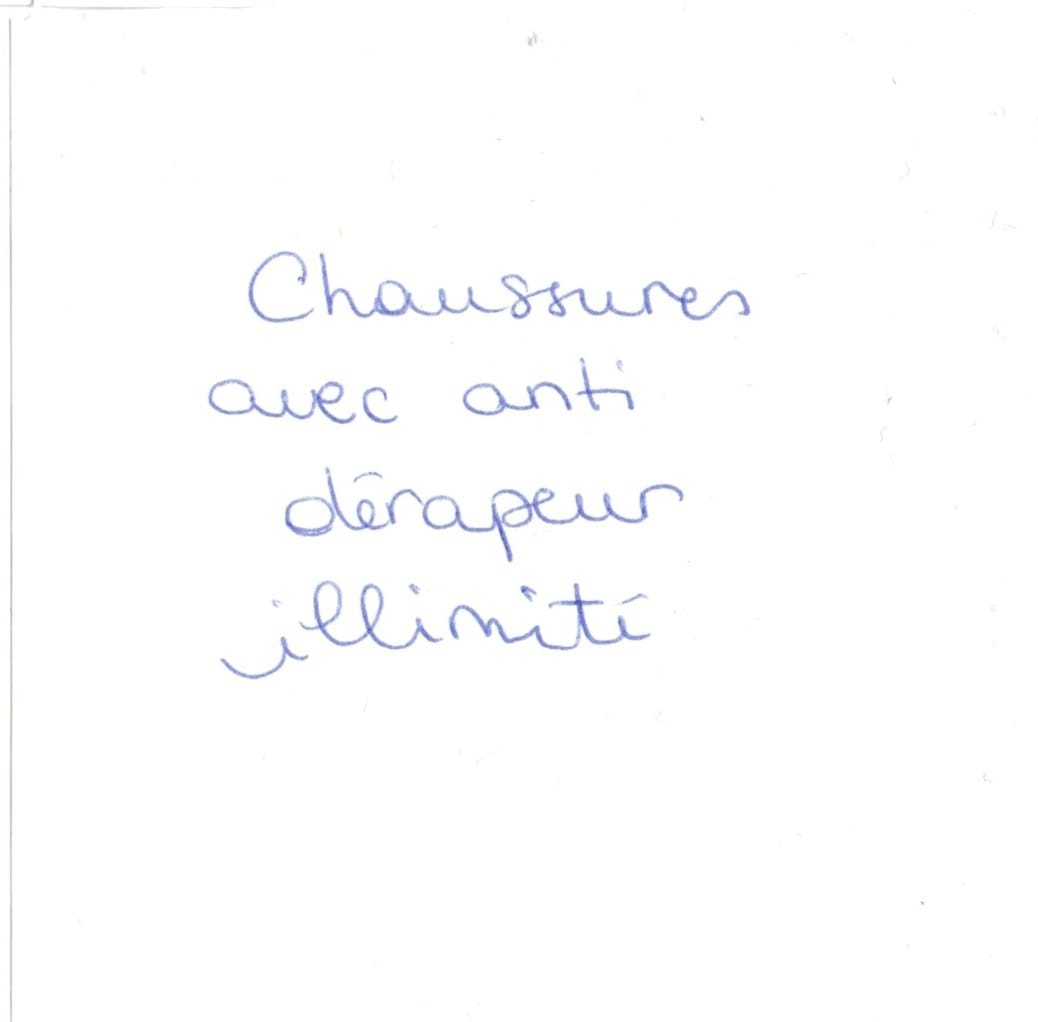 Chaussures
avec anti
dérapeur
illimité